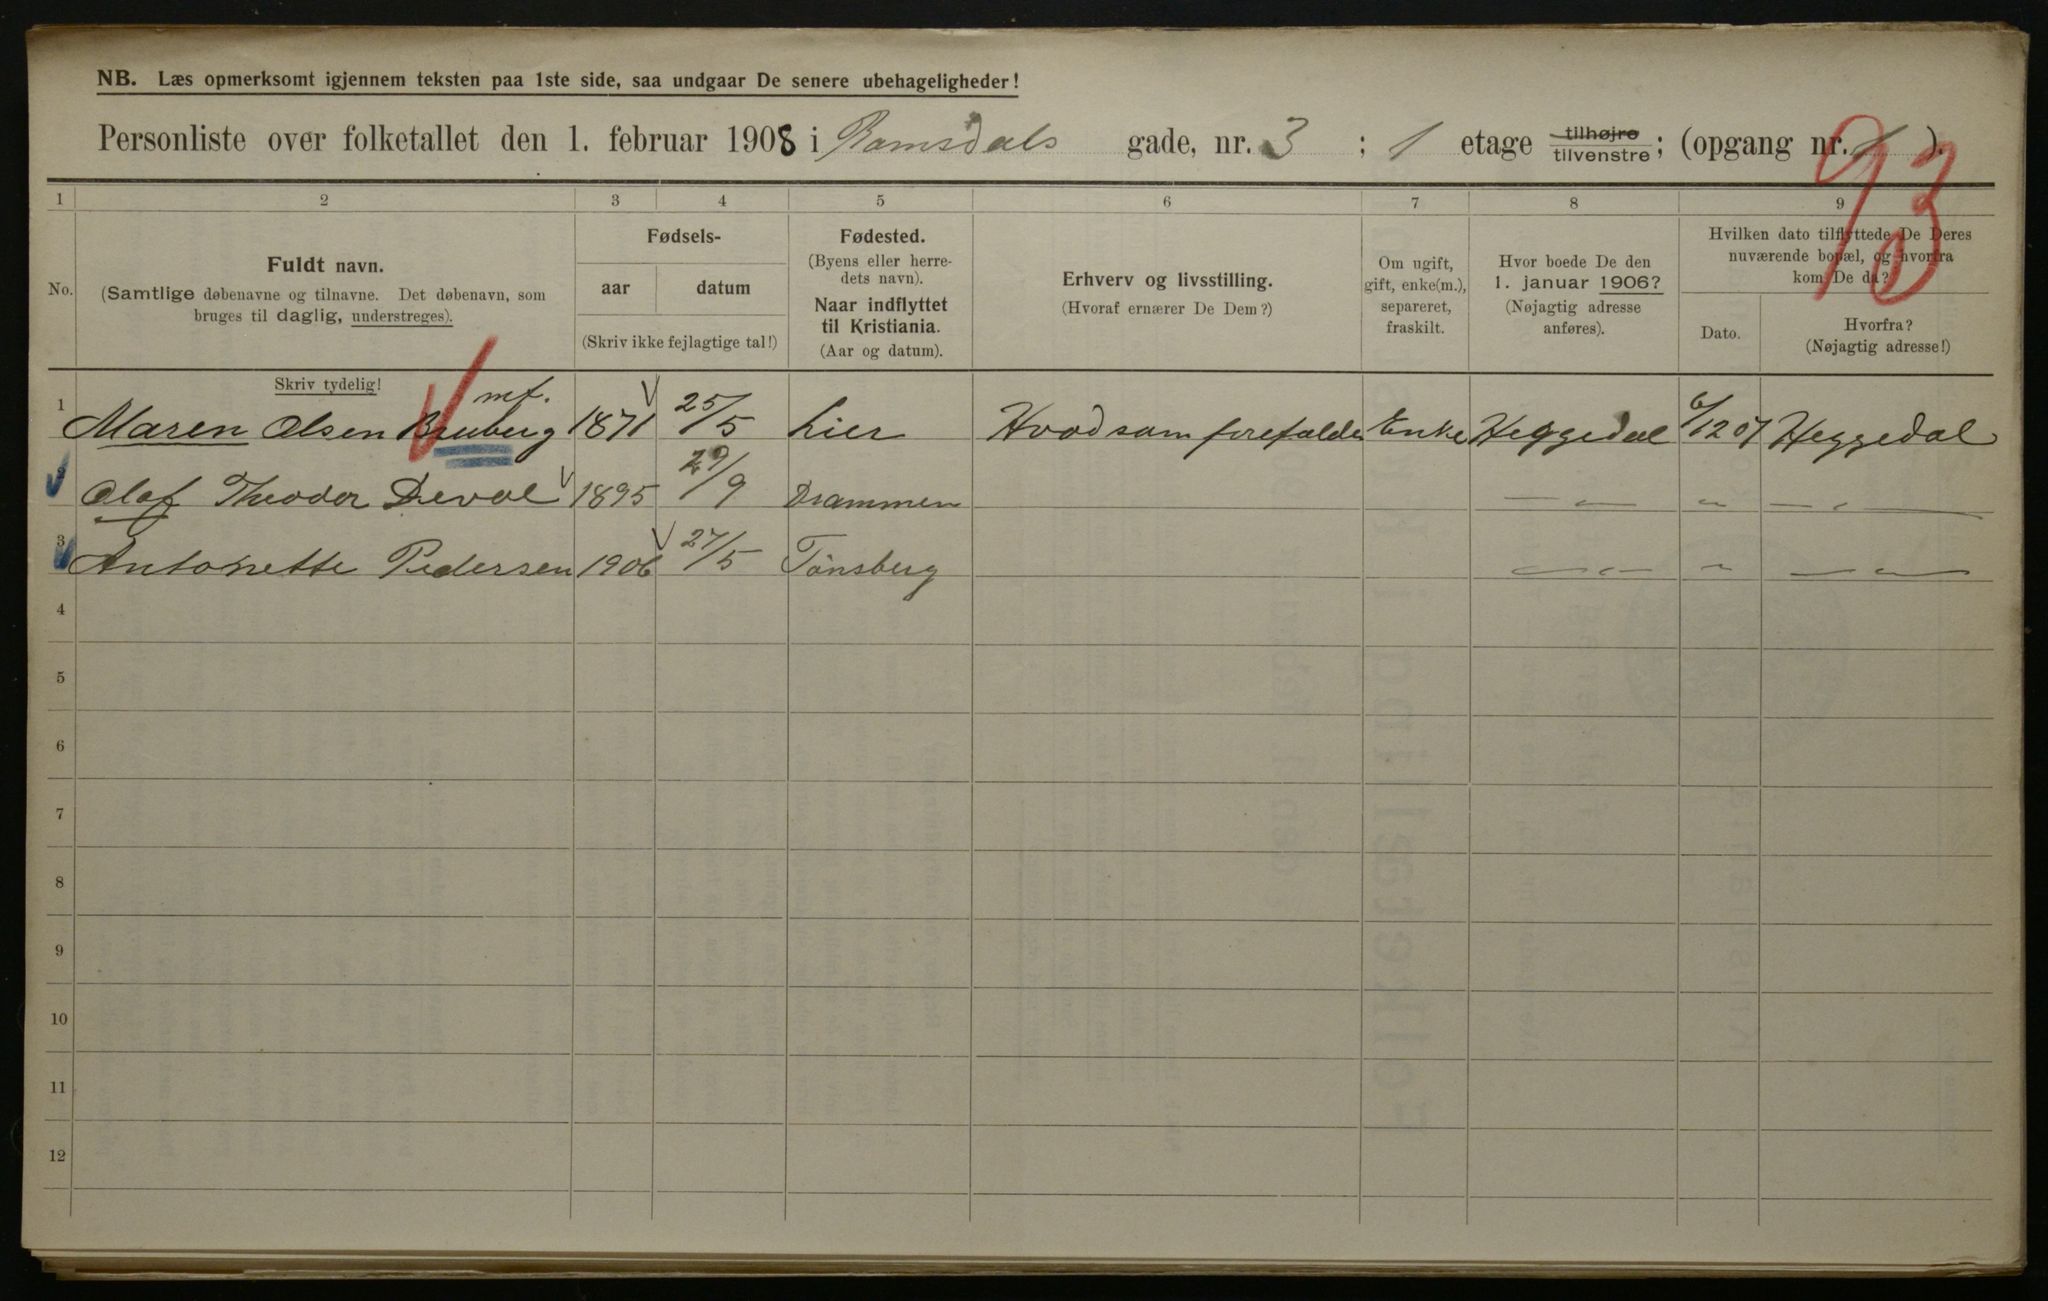 NB. Læs opmerksomt igjennem teksten paa 1ste side, saa undgaar De senere ubehageligheder!
Personliste over folketallet den 1. februar 1908 i Romsdals gade, nr. 3 ; 1 etage tilhøjre tilvenstre ; (opgang nr. 1 ).
93
1 2 3 4 5 6 7 8 9
No.
Fuldt navn.
(Samtlige døbenavne og tilnavne. Det døbenavn, som
bruges til daglig, understreges).
Skriv tydelig!
Fødsels-
aar datum
(Skriv ikke fejlagtige tal!)
Fødested.
(Byens eller herre-
dets navn).
Naar indflyttet
til Kristiania.
(Aar og datum).
Erhverv og livsstilling.
(Hvoraf ernærer De Dem?)
Om ugift,
gift, enke(m.),
separeret,
fraskilt.
Hvor boede De den
1. januar 1906?
(Nøjagtig adresse
anføres).
Hvilken dato tilflyttede De Deres
nuværende bopæl, og hvorfra
kom De da?
Dato.
Hvorfra?
(Nøjagtig adresse!)
mf.
1 Maren Olsen Bruberg 1871 25/5 Lier Hvad som forefalder Enke Heggedal 6/12 07 Heggedal
2 Olaf Theodor Devol 1895 29/9 Drammen — " — " — " —
3 Antonette Pedersen 1906 27/5 Tønsberg — " — " — " —
4
5
6
7
8
9
10
11
12